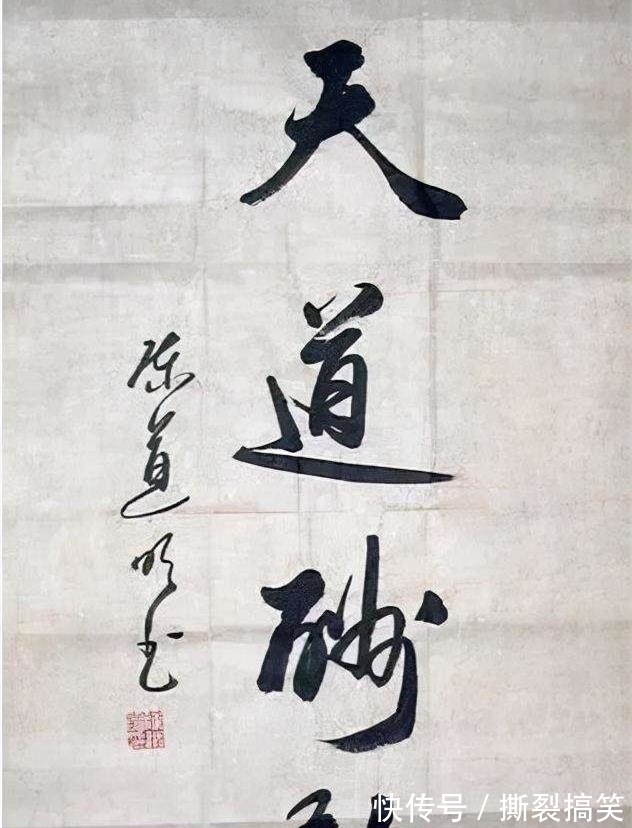 天道酬
陈道明书
快传号 / 撕裂搞笑